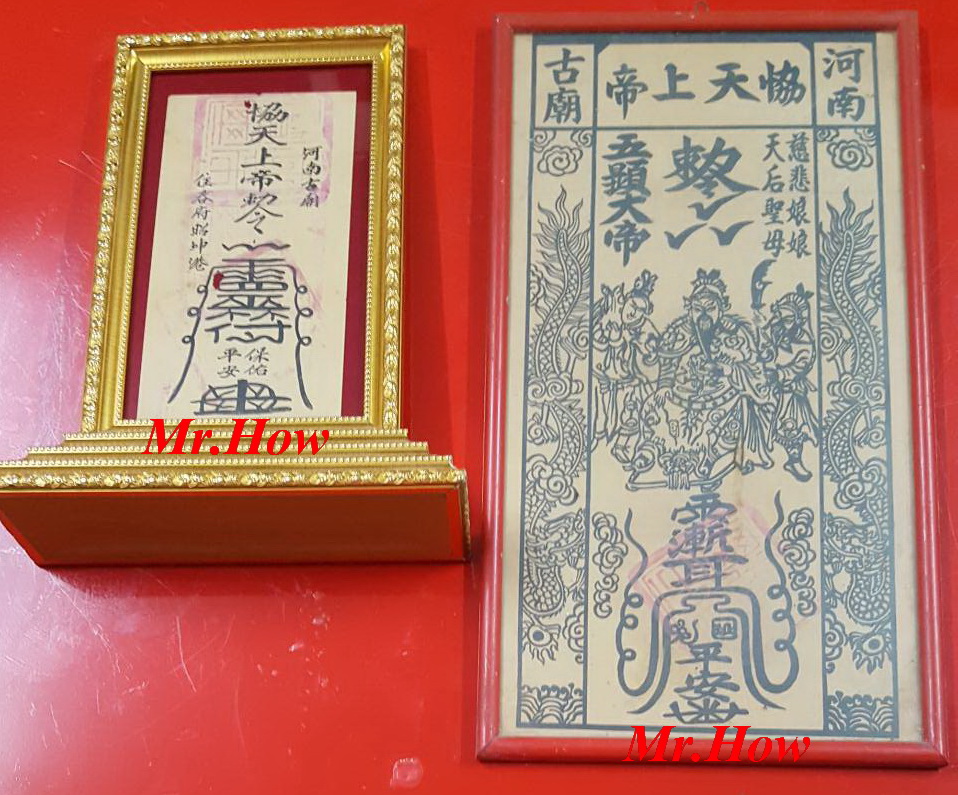 河南古廟
恊天上帝勅令
保佑
平安
Mr.How
河南
恊天上帝
古廟
慈悲娘娘
天后聖母
敕令
五顯大帝
平安
Mr.How